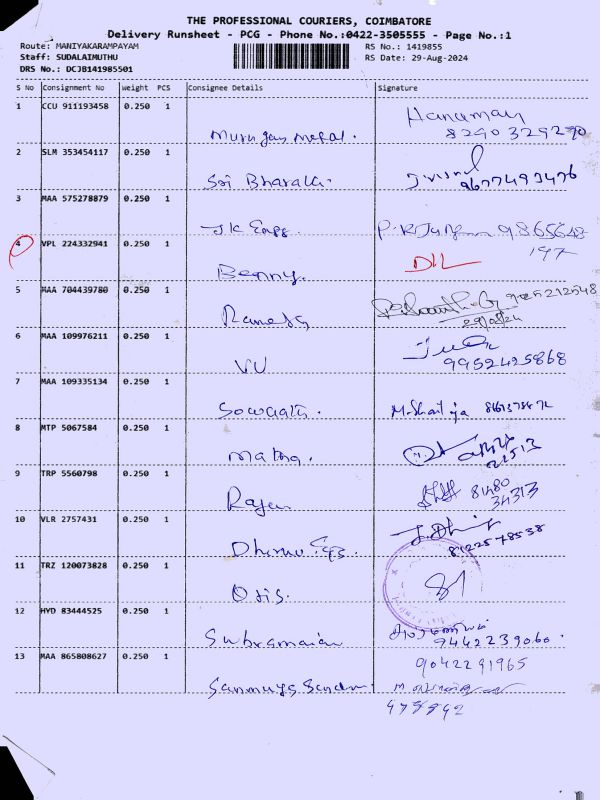 THE PROFESSIONAL COURIERS, COIMBATORE
Delivery Runsheet - PCG - Phone No.:0422-3505555 - Page No.:1
Route: MANIYAKARAMPAYAM
Staff: SUDALAIMUTHU
DRS No.: DCJB141985501
RS No.: 1419855
RS Date: 29-Aug-2024
S No Consignment No Weight PCS Consignee Details Signature
1 CCU 911193458 0.250 1 Hanuman
8290329290
2 SLM 353454117 0.250 1 Sri Bharath.
9677493476
3 MAA 575278879 0.250 1 JK Engg. 9865648
197
4 VPL 224332941 0.250 1 Benny. DIL
5 MAA 704439780 0.250 1 Ramesh
29/08/24
6 MAA 109976211 0.250 1 VU
9952425868
7 MAA 109335134 0.250 1
8 MTP 5067584 0.250 1
9 TRP 5560798 0.250 1 Rajan 81480
34313
10 VLR 2757431 0.250 1 J. Dhir
8122578538
11 TRZ 120073828 0.250 1 Otis.
12 HYD 83444525 0.250 1 Subramanian
9442239060.
13 MAA 865808627 0.250 1 9042291965